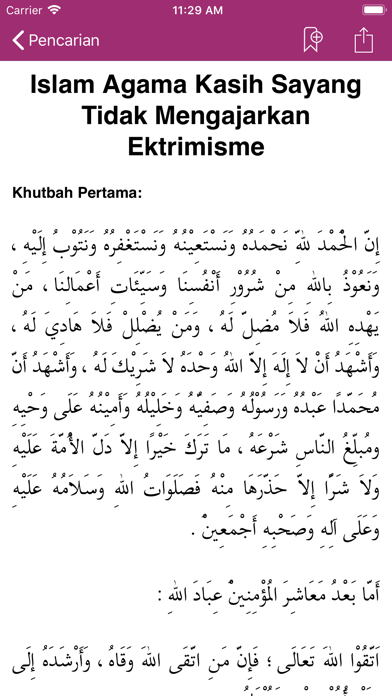 Carrier 11:29 AM
Pencarian
Islam Agama Kasih Sayang
Tidak Mengajarkan
Ektrimisme
Khutbah Pertama:
إِنَّ الْحَمْدَ لِلَّهِ نَحْمَدُهُ وَنَسْتَعِينُهُ وَنَسْتَغْفِرُهُ وَنَتُوْبُ إِلَيْهِ ،
وَنَعُوْذُ بِاللهِ مِنْ شُرُوْرِ أَنْفُسِنَا وَسَيِّئَاتِ أَعْمَالِنَا ، مَنْ
يَهْدِهِ اللهُ فَلاَ مُضِلَّ لَهُ ، وَمَنْ يُضْلِلْ فَلاَ هَادِيَ لَهُ ،
وَأَشْهَدُ أَنْ لاَ إِلَهَ إِلاَّ اللهُ وَحْدَهُ لاَ شَرِيْكَ لَهُ ، وَأَشْهَدُ أَنَّ
مُحَمَّدًا عَبْدُهُ وَرَسُوْلُهُ وَصَفِيُّهُ وَخَلِيْلُهُ وَأَمِيْنُهُ عَلَى وَحْيِهِ
وَمُبلِّغُ النَّاسِ شَرْعَهُ ، مَا تَرَكَ خَيْرًا إِلاَّ دَلَّ الأُمَّةَ عَلَيْهِ
وَلاَ شَرًّا إِلاَّ حَذَّرَهَا مِنْهُ فَصَلَوَاتُ اللهِ وَسَلاَمُهُ عَلَيْهِ
وَعَلَى آلِهِ وَصَحْبِهِ أَجْمَعِيْنَ .
أَمَّا بَعْدُ مَعَاشِرَ الْمُؤْمِنِيْنَ عِبَادَ اللهِ :
اَتَّقُوْا اللهَ تَعَالَى ؛ فَإِنَّ مَنِ اتَّقَى اللهَ وَقَاهُ ، وَأَرْشَدَهُ إِلَى